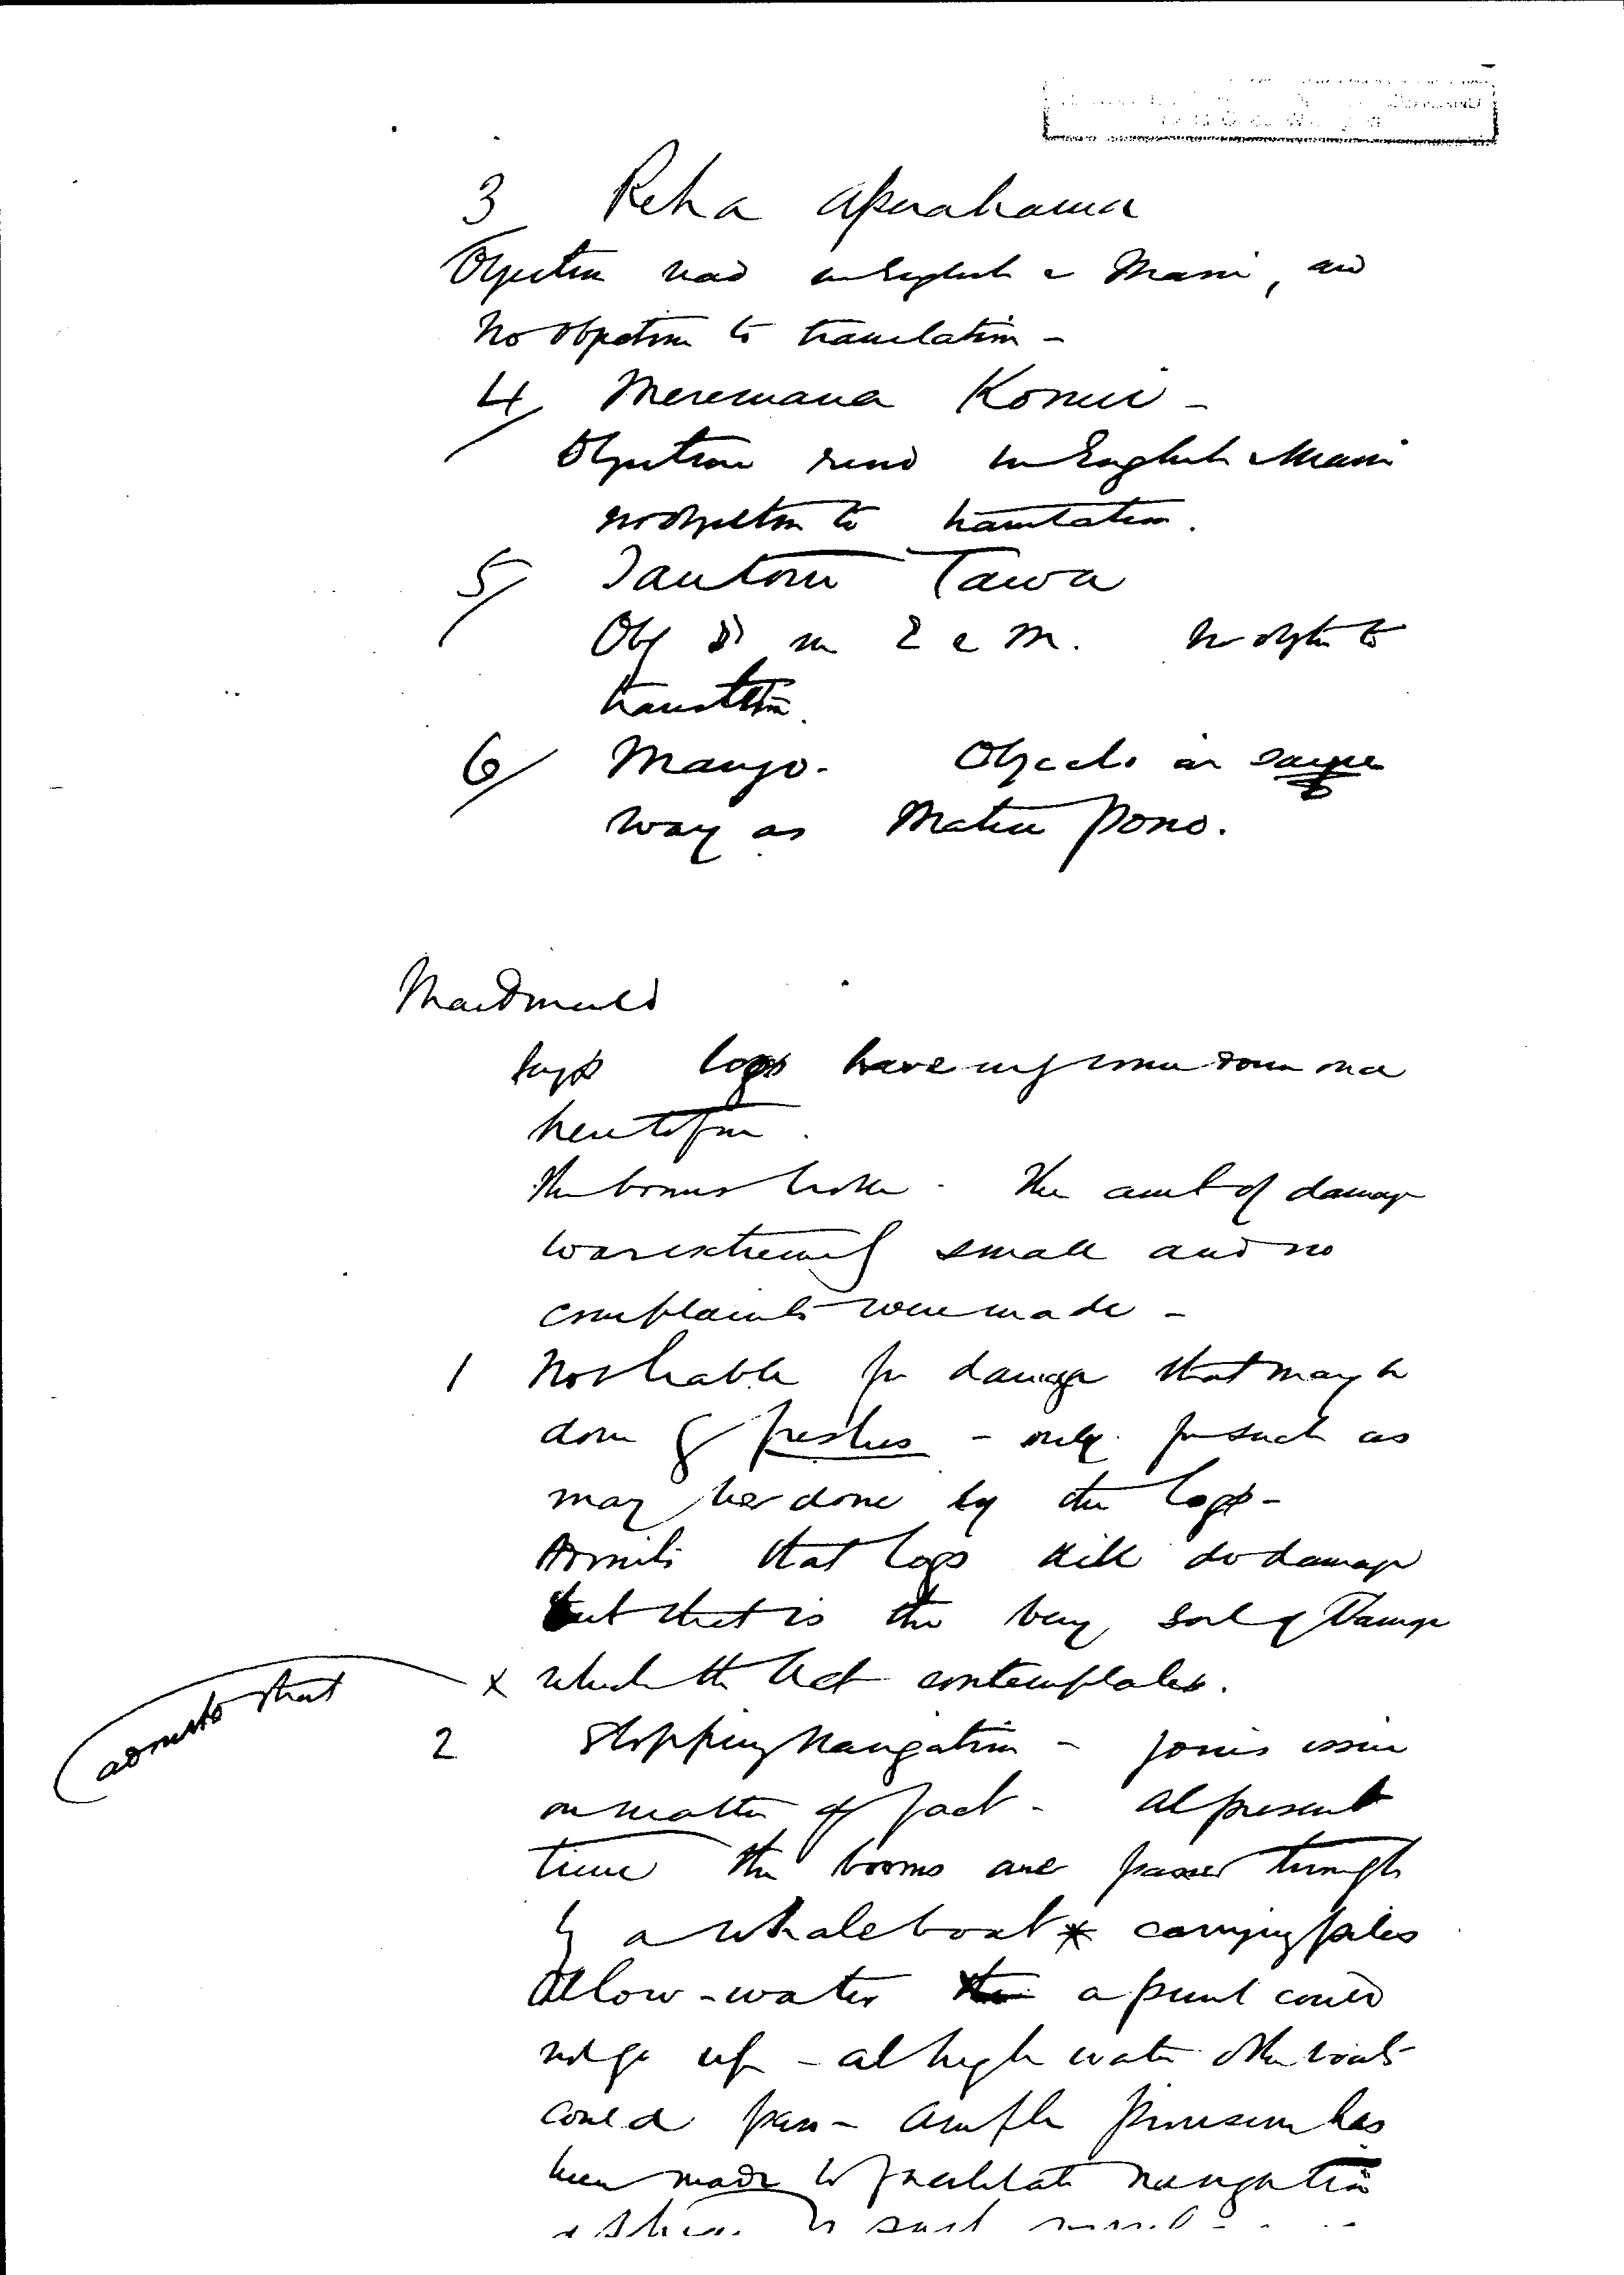 3 Reha Aperahama
Objection read in English & Maori, and
No objection to translation -
4/ Meremana Konui -
Objection read in English & Maori
no objection to translation.
5/ Tautoru Tawa
Obj in E & M. No objtn to
translation.
6/ Manga. Objects in same
way as Matiu Pono.
MacDonald
says logs have only come down once
heretofore.
The booms broke. The amt of damage
was extremely small and no
complaints were made -
1 Not liable for damage that may be
done by freshes - only for such as
may be done by the logs -
Admits that logs will do damage
but that is the very sort of Damage
x which the Act contemplates.
admits that
2 Stopping Navigation - joins issue
on matter of fact - at present
time the booms are passed through
by a whaleboat * carrying piles
At low-water a punt could
not go up - at high water other boats
could pass - ample provision has
been made to facilitate navigation